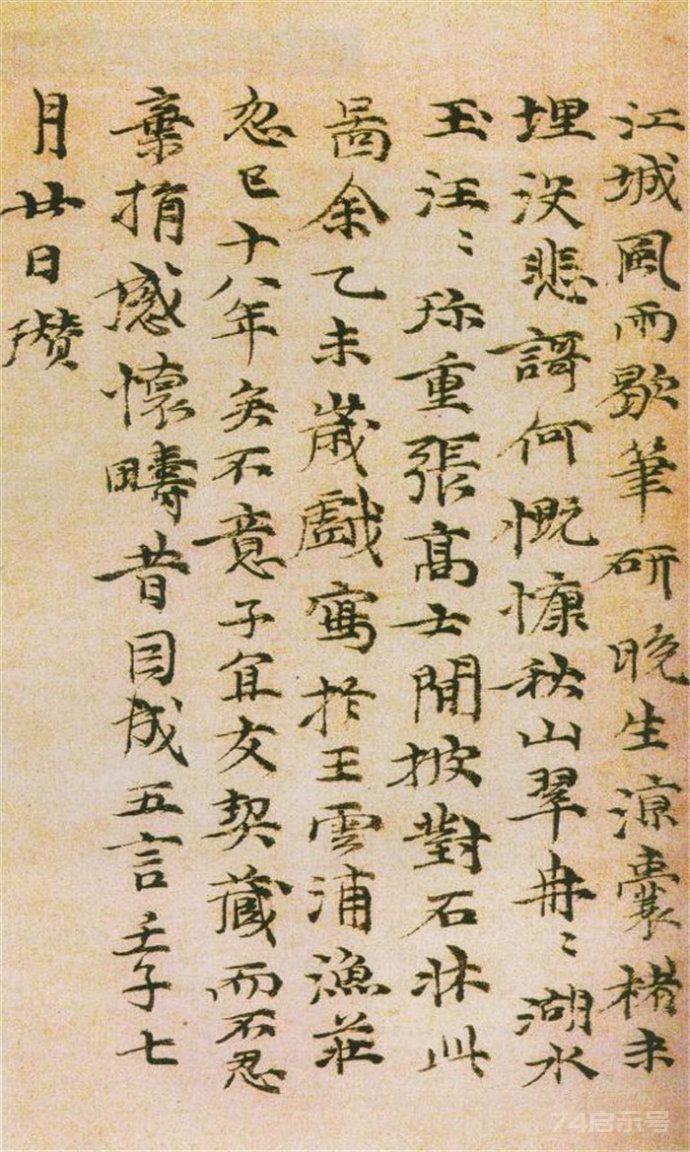 江城風雨歇筆研晚生涼囊楮未
埋沒悲謌何慨慷秋山翠冉〻湖水
玉汪〻珎重張高士閒披對石牀此
啚余乙未歲戲寫於王雲浦漁莊
忽已十八年矣不意子宜友契藏而不忍
棄捐感懷疇昔因成五言壬子七
月廿日瓚
74启示号